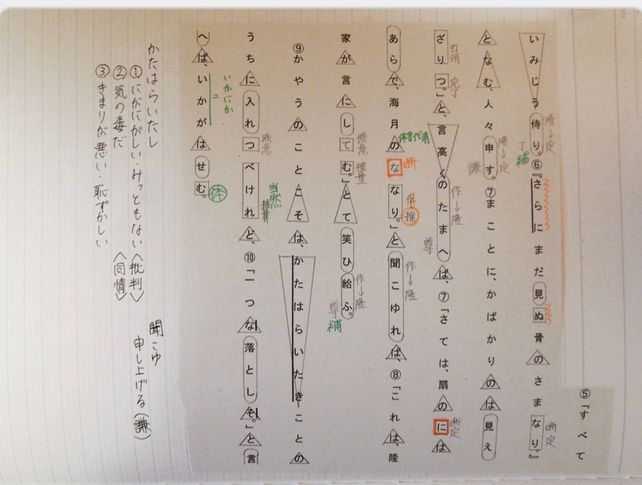 ⑤「すべて
いみじう侍り。⑥『さらにまだ見ぬ骨のさまなり。』
となむ人々申す。⑦まことに、かばかりのは見え
ざりつ。」と、言高くのたまへば、⑦「さては、扇のには
あらで、海月のななり。」と聞こゆれば、⑧「これは隆
家が言にしてむ。」とて笑ひ給ふ。
⑨かやうのことこそは、かたはらいたきことの
うちに入れつべけれど、⑩「一つな落としそ。」と言
へば、いかがはせむ。
隆→定
丁補
断定
隆→定
謙
打消
完了
作→隆
尊
断定
体言代用
断
体
推
作→隆
強意
推量
作→隆
尊補
強意
推量
当然
いかにか
=
体
かたはらいたし
①にがにがしい・みっともない〈批判〉
②気の毒だ〈同情〉
③きまりが悪い・恥ずかしい
聞こゆ
申し上げる(謙)